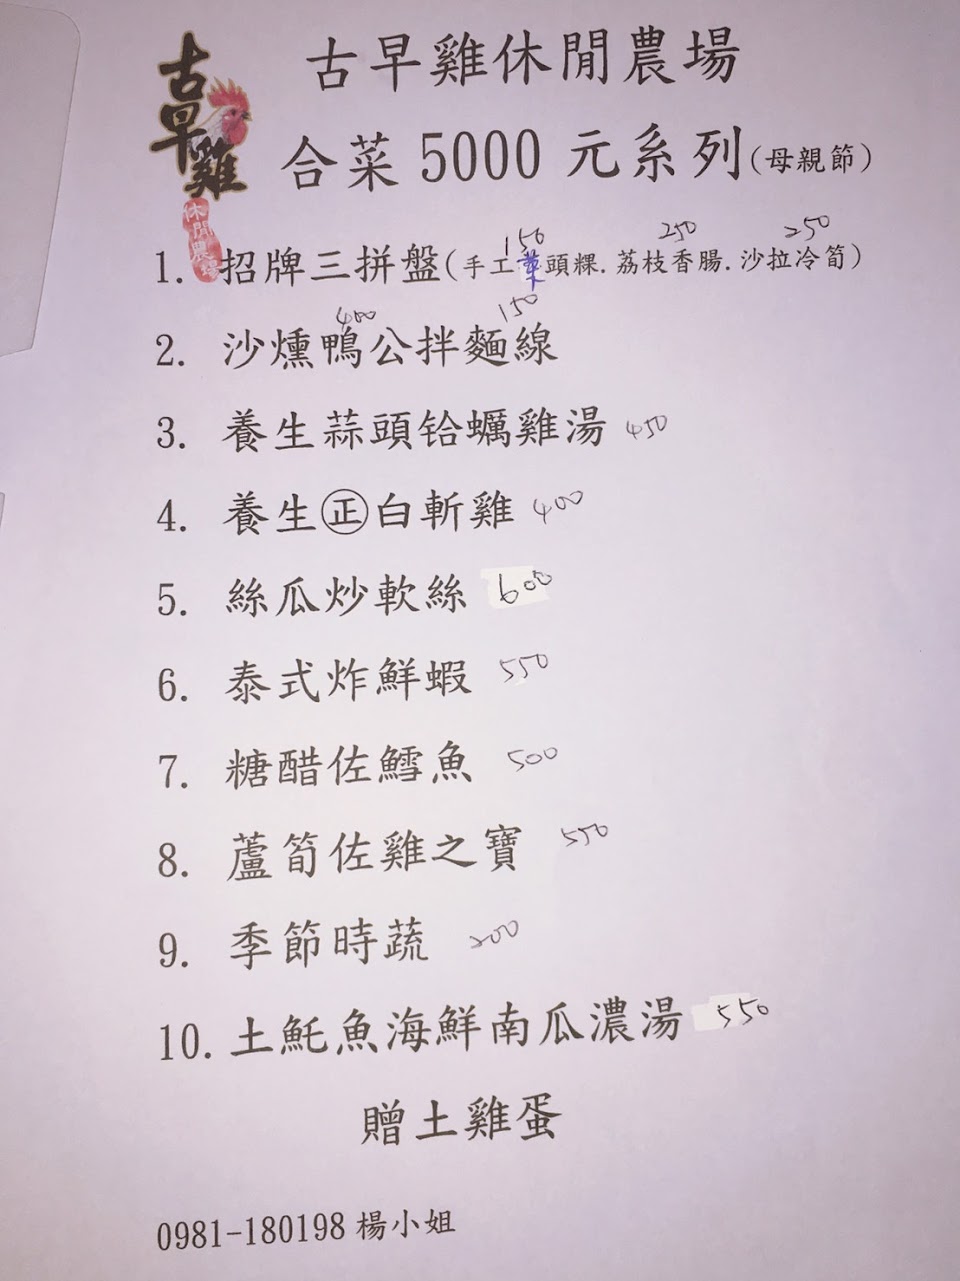 古早雞
休閒農場
古早雞休閒農場
合菜 5000 元系列(母親節)
150 250 250
1. 招牌三拼盤(手工菜頭粿.荔枝香腸.沙拉冷筍)
400 150
2. 沙燻鴨公拌麵線
3. 養生蒜頭铪蠣雞湯 450
4. 養生㊣白斬雞 400
5. 絲瓜炒軟絲 600
6. 泰式炸鮮蝦 550
7. 糖醋佐鱈魚 500
8. 蘆筍佐雞之寶 550
9. 季節時蔬 200
10. 土魠魚海鮮南瓜濃湯 550
贈土雞蛋
0981-180198 楊小姐